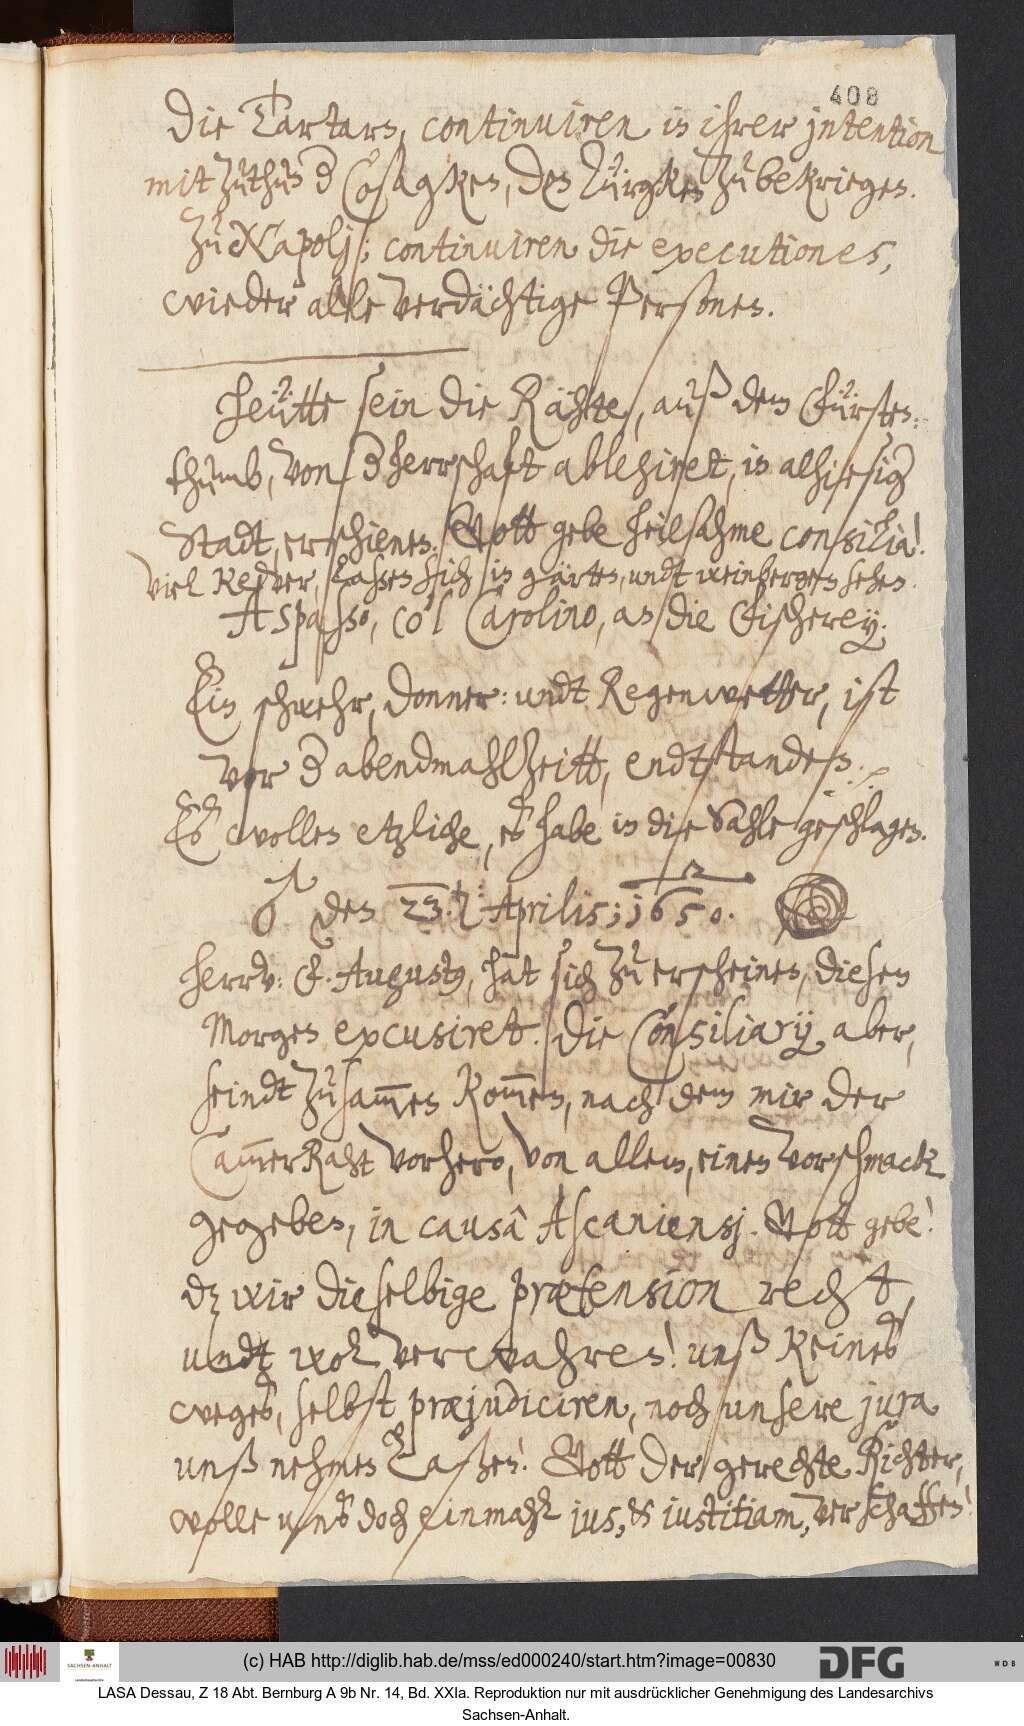 408
Die Tartarn, continuiren in ihrer intention
mit zuthun d Cosagken, den Türgken zu bekriegen.
Zu Napolj; continuiren die executiones,
wieder alle verdächtige Personen.
Heütte sein die Rähte, auß dem Fürsten:
thumb, von d herrschaft ablehiret, in alhiesig
Stadt, erschienen. Gott gebe heilsahme consilia!
Viel Reißer, laßen sich in gärten, undt weinbergen sehen.
A spasso, col Carolino, an die Fischerey.
Ein schwehr, Donner: undt Regenwetter, ist
vor d abendmahlzeitt, endtstanden.
Eß wollen etzliche, eß habe in die Sahle geschlagen.
♂ den 23. Aprilis; 1650.
Herrv: F. Augustus, hat sich zu erscheinen, diesen
Morgen excusiret. Die Consiliarij aber,
seindt zusam̄en kom̄en, nach dem mir der
Cam̄erRaht vorhero, von allem, einen vorschmack
gegeben, in causâ Ascaniensj. Gott gebe!
dz wir dieselbige prætension recht,
undt wol verwahren! unß keines
weges, selbst præjudiciren, noch unsere jura
unß nehmen laßen! Gott der gerechte Richter,
wolle unß doch einmahl jus, & iustitiam, verschaffen!
(c) HAB http://diglib.hab.de/mss/ed000240/start.htm?image=00830
SACHSEN-ANHALT
DFG
WDB
LASA Dessau, Z 18 Abt. Bernburg A 9b Nr. 14, Bd. XXIa. Reproduktion nur mit ausdrücklicher Genehmigung des Landesarchivs
Sachsen-Anhalt.